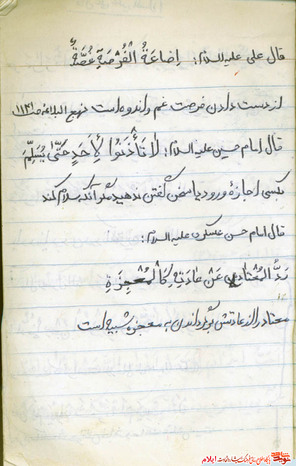 قال علی علیه السلام: اِضاعَةُ الْفُرْصَةِ غُصَّةٌ
از دست دادن فرصت غم و اندوه است نهج البلاغه
قال امام حسین علیه السلام: لا تَأذَنُوا لِأَحَدٍ حَتّیٰ یُسَلِّمَ
بکسی اجازه ورود یا سخن گفتن ندهید مگر آنکه سلام کند
قال امام حسن عسکری علیه السلام:
رَدُّ المُعْتادِ عَنْ عادَتِهِ کَالْمُعْجِزَةِ
معتاد را از عادتش برگرداندن به معجزه شبیه است